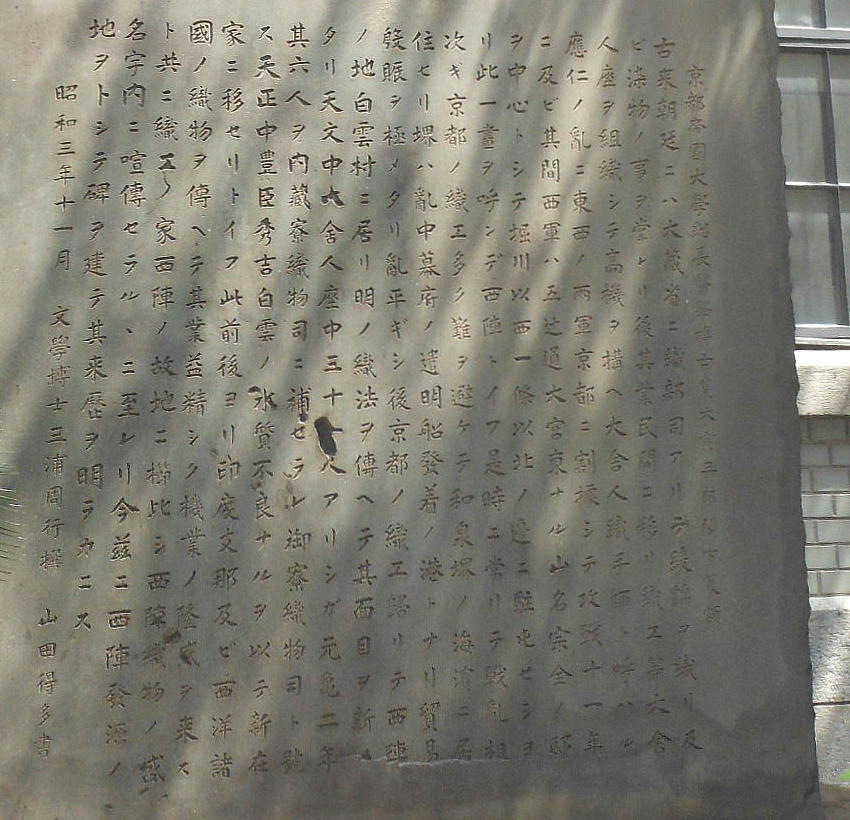 京都帝國大學總長醫學博士
古来朝廷ニハ大蔵省ニ織部司アリテ綾錦ヲ織リ及
ビ染物ノ事ヲ掌レリ後其業民間ニ移リ織工等大舎
人座ヲ組織シテ高機ヲ構ヘ大舎人織手師ト呼ハル
應仁ノ亂ニ東西ノ兩軍京都ニ割據シテ攻戰十一年
ニ及ビ其間西軍ハ五辻通大宮東ナル山名宗全ノ邸
ヲ中心トシテ堀川以西一條以北ノ邊ニ駐屯セシヨ
リ此一畫ヲ呼ンデ西陣トイフ是時ニ當リテ戰亂相
次ギ京都ノ織工多ク難ヲ避ケテ和泉堺ノ海濱ニ居
住セリ堺ハ亂中幕府ノ遣明船發着ノ港トナリ貿易
殷賑ヲ極メタリ亂平ギシ後京都ノ織工語リテ西陣
ノ地白雲村ニ居リ明ノ織法ヲ傳ヘテ其面目ヲ新ム
タリ天文中大舎人座中三十一人アリシガ元亀二年
其六人ヲ内藏寮織物司ニ補セラレ御寮織物司ト號
ス天正中豊臣秀吉白雲ノ水質不良ナルヲ以テ新在
家ニ移セリトイフ此前後ヨリ印度支那及ビ西洋諸
國ノ織物ヲ傳ヘテ其業益精シク機業ノ隆盛ヲ来ス
ト共ニ織工ノ家西陣ノ故地ニ櫛比シ西陣織物ノ盛
名宇内ニ喧傳セラルヽニ至レリ今茲ニ西陣發源ノ
地ヲトシテ碑ヲ建テ其来歴ヲ明テカニス
昭和三年十一月 文學博士三浦周行撰 山田得多書